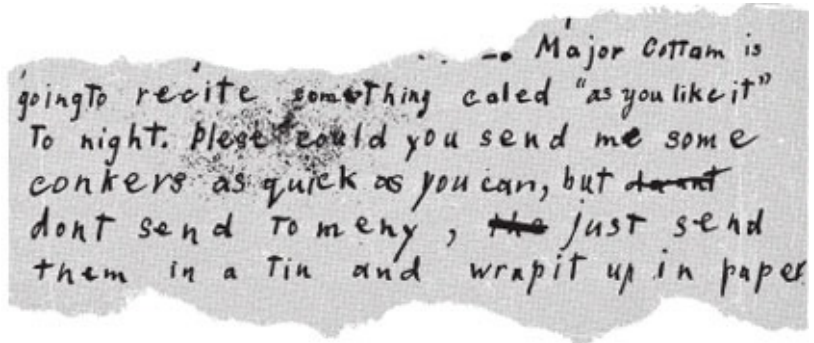 Major Cottam is
going to recite something caled "as you like it"
To night. Plese could you send me some
conkers as quick as you can, but
dont send To meny, the just send
them in a Tin and wrap it up in paper